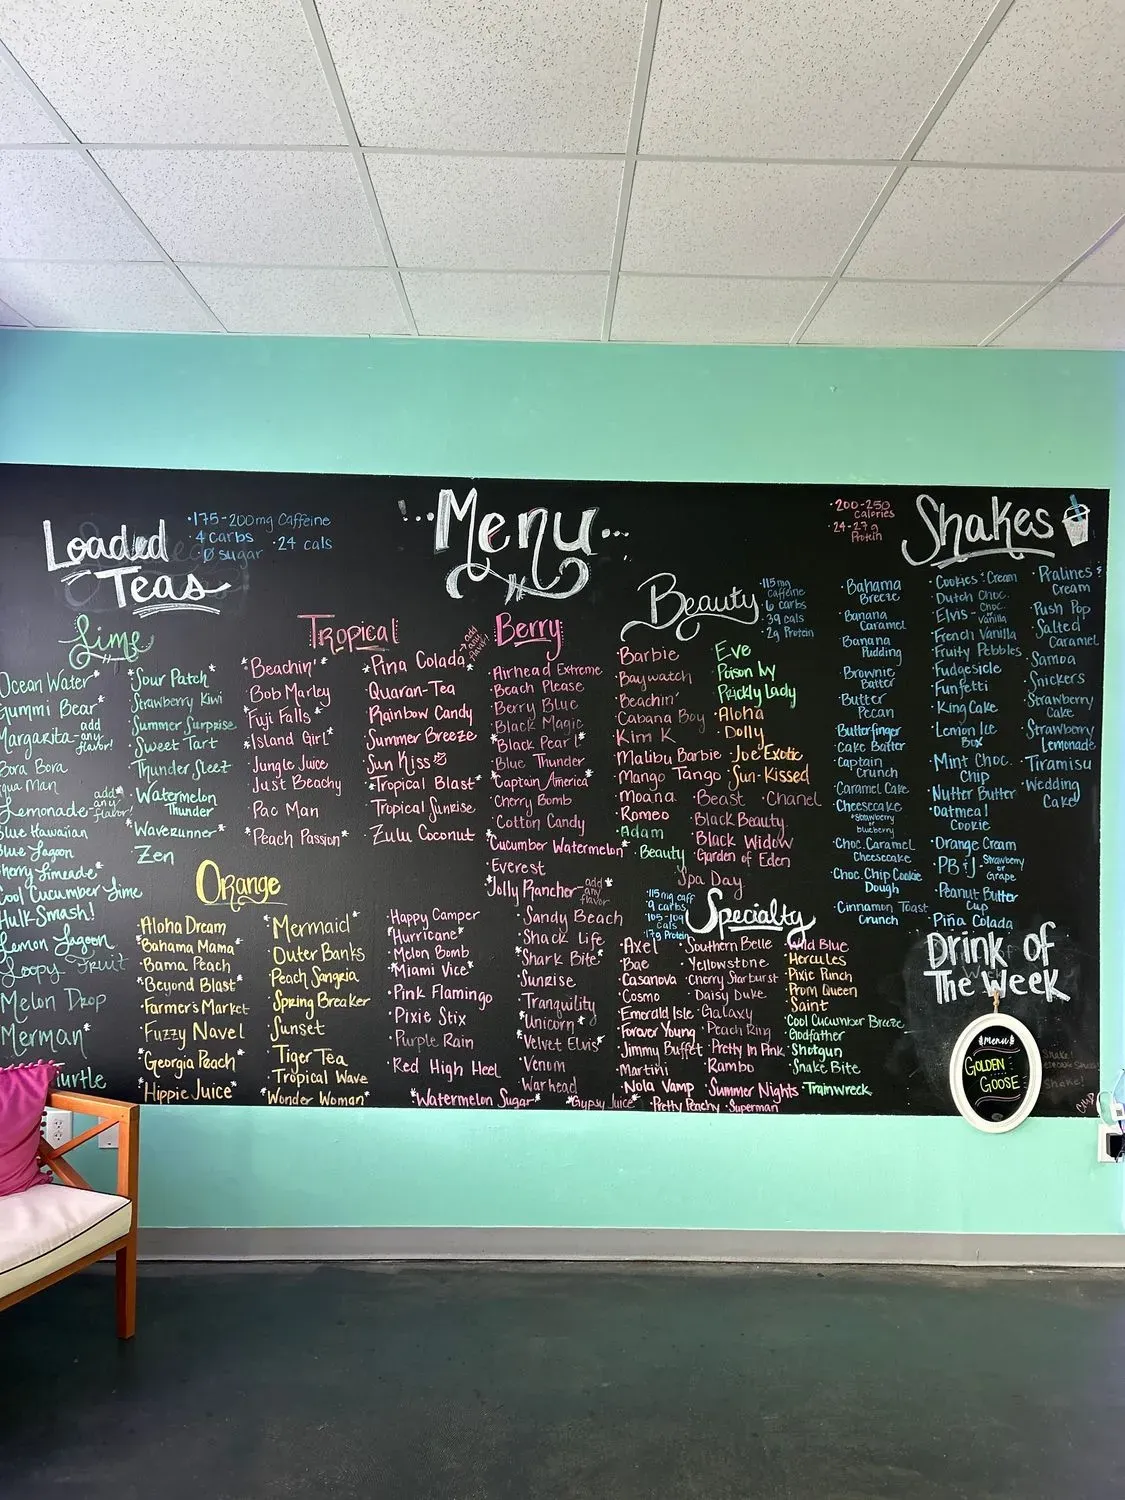 Menu
Loaded
Teas
·175-200mg Caffeine
·4 carbs ·24 cals
·Ø sugar
Lime
Ocean Water*
Gummi Bear*
Margarita - add any flavor!
Bora Bora
Lemonade - add any flavor!
Blue Hawaiian
Blue Lagoon
Cherry Limeade*
Cool Cucumber Lime
Hulk-Smash!
Lemon Lagoon
Loopy Fruit
Melon Drop
Merman*
Turtle
*Sour Patch*
·Strawberry Kiwi
·Summer Surprise
·Sweet Tart
·Thunder Sleez
·Watermelon
Thunder
·Waverunner*
·Zen
Tropical
*Beachin'*
·Bob Marley
*Fuji Falls*
*Island Girl*
·Jungle Juice
·Just Beachy
·Pac Man
*Peach Passion*
*Pina Colada - add any flavor!
·Quaran-Tea
·Rainbow Candy
·Summer Breeze
·Sun Kiss
*Tropical Blast*
·Tropical Sunrise
·Zulu Coconut
Orange
·Aloha Dream
*Bahama Mama*
·Bama Peach
*Beyond Blast*
·Farmer's Market
·Fuzzy Navel
*Georgia Peach*
*Hippie Juice*
*Mermaid*
·Outer Banks
·Peach Sangria
·Spring Breaker
·Sunset
·Tiger Tea
·Tropical Wave
*Wonder Woman*
Berry
·Airhead Extreme
·Beach Please
·Berry Blue
·Black Magic
*Black Pearl*
·Blue Thunder
*Captain America*
·Cherry Bomb
·Cotton Candy
*Cucumber Watermelon*
·Everest
*Jolly Rancher - add any flavor
·Happy Camper
*Hurricane*
·Melon Bomb
*Miami Vice*
·Pink Flamingo
·Pixie Stix
·Purple Rain
·Red High Heel
*Watermelon Sugar*
·Sandy Beach
·Shack Life
*Shark Bite*
·Sunrise
·Tranquility
*Unicorn*
*Velvet Elvis*
·Venom
·Warhead
*Gypsy Juice*
Beauty
·115 mg
caffeine
·6 carbs
·39 cals
·2g Protein
·Barbie
·Baywatch
·Beachin'
·Cabana Boy
·Kim K
·Malibu Barbie
·Mango Tango
·Moana
·Romeo
·Adam
·Beauty
·Eve
·Poison Ivy
·Prickly Lady
·Aloha
·Dolly
·Joe Exotic
·Sun-Kissed
·Beast ·Chanel
·Black Beauty
·Black Widow
·Garden of Eden
·Spa Day
Specialty
·115mg caff
·9 carbs
·17g Protein
·Axel
·Bae
·Casanova
·Cosmo
·Emerald Isle
·Forever Young
·Jimmy Buffet
·Martini
·Nola Vamp
·Pretty Peachy
·Southern Belle
·Yellowstone
·Cherry Starburst
·Daisy Duke
·Galaxy
·Peach Ring
·Pretty In Pink
·Rambo
·Summer Nights
·Superman
·Wild Blue
·Hercules
·Pixie Punch
·Prom Queen
·Saint
·Cool Cucumber Breeze
·Godfather
·Shotgun
·Snake Bite
·Trainwreck
Shakes
·200-250
calories
·24-27g
Protein
·Bahama
Breeze
·Banana
Caramel
·Banana
Pudding
·Brownie
Batter
·Butter
Pecan
·Butterfinger
·Cake Batter
·Captain
Crunch
·Caramel Cake
·Cheesecake
*strawberry
or
blueberry
·Choc. Caramel
Cheesecake
·Choc. Chip Cookie
Dough
·Cinnamon Toast
Crunch
·Cookies & Cream
·Dutch Choc.
·Elvis - choc. or vanilla
·French Vanilla
·Fruity Pebbles
·Fudgesicle
·Funfetti
·King Cake
·Lemon Ice
Box
·Mint Choc.
Chip
·Nutter Butter
·Oatmeal
Cookie
·Orange Cream
·PB & J - Strawberry or Grape
·Peanut Butter
Cup
·Piña Colada
·Pralines &
Cream
·Push Pop
·Salted
Caramel
·Samoa
·Snickers
·Strawberry
Cake
·Strawberry
Lemonade
·Tiramisu
·Wedding
Cake
Drink of
The Week
menu
Golden
Goose